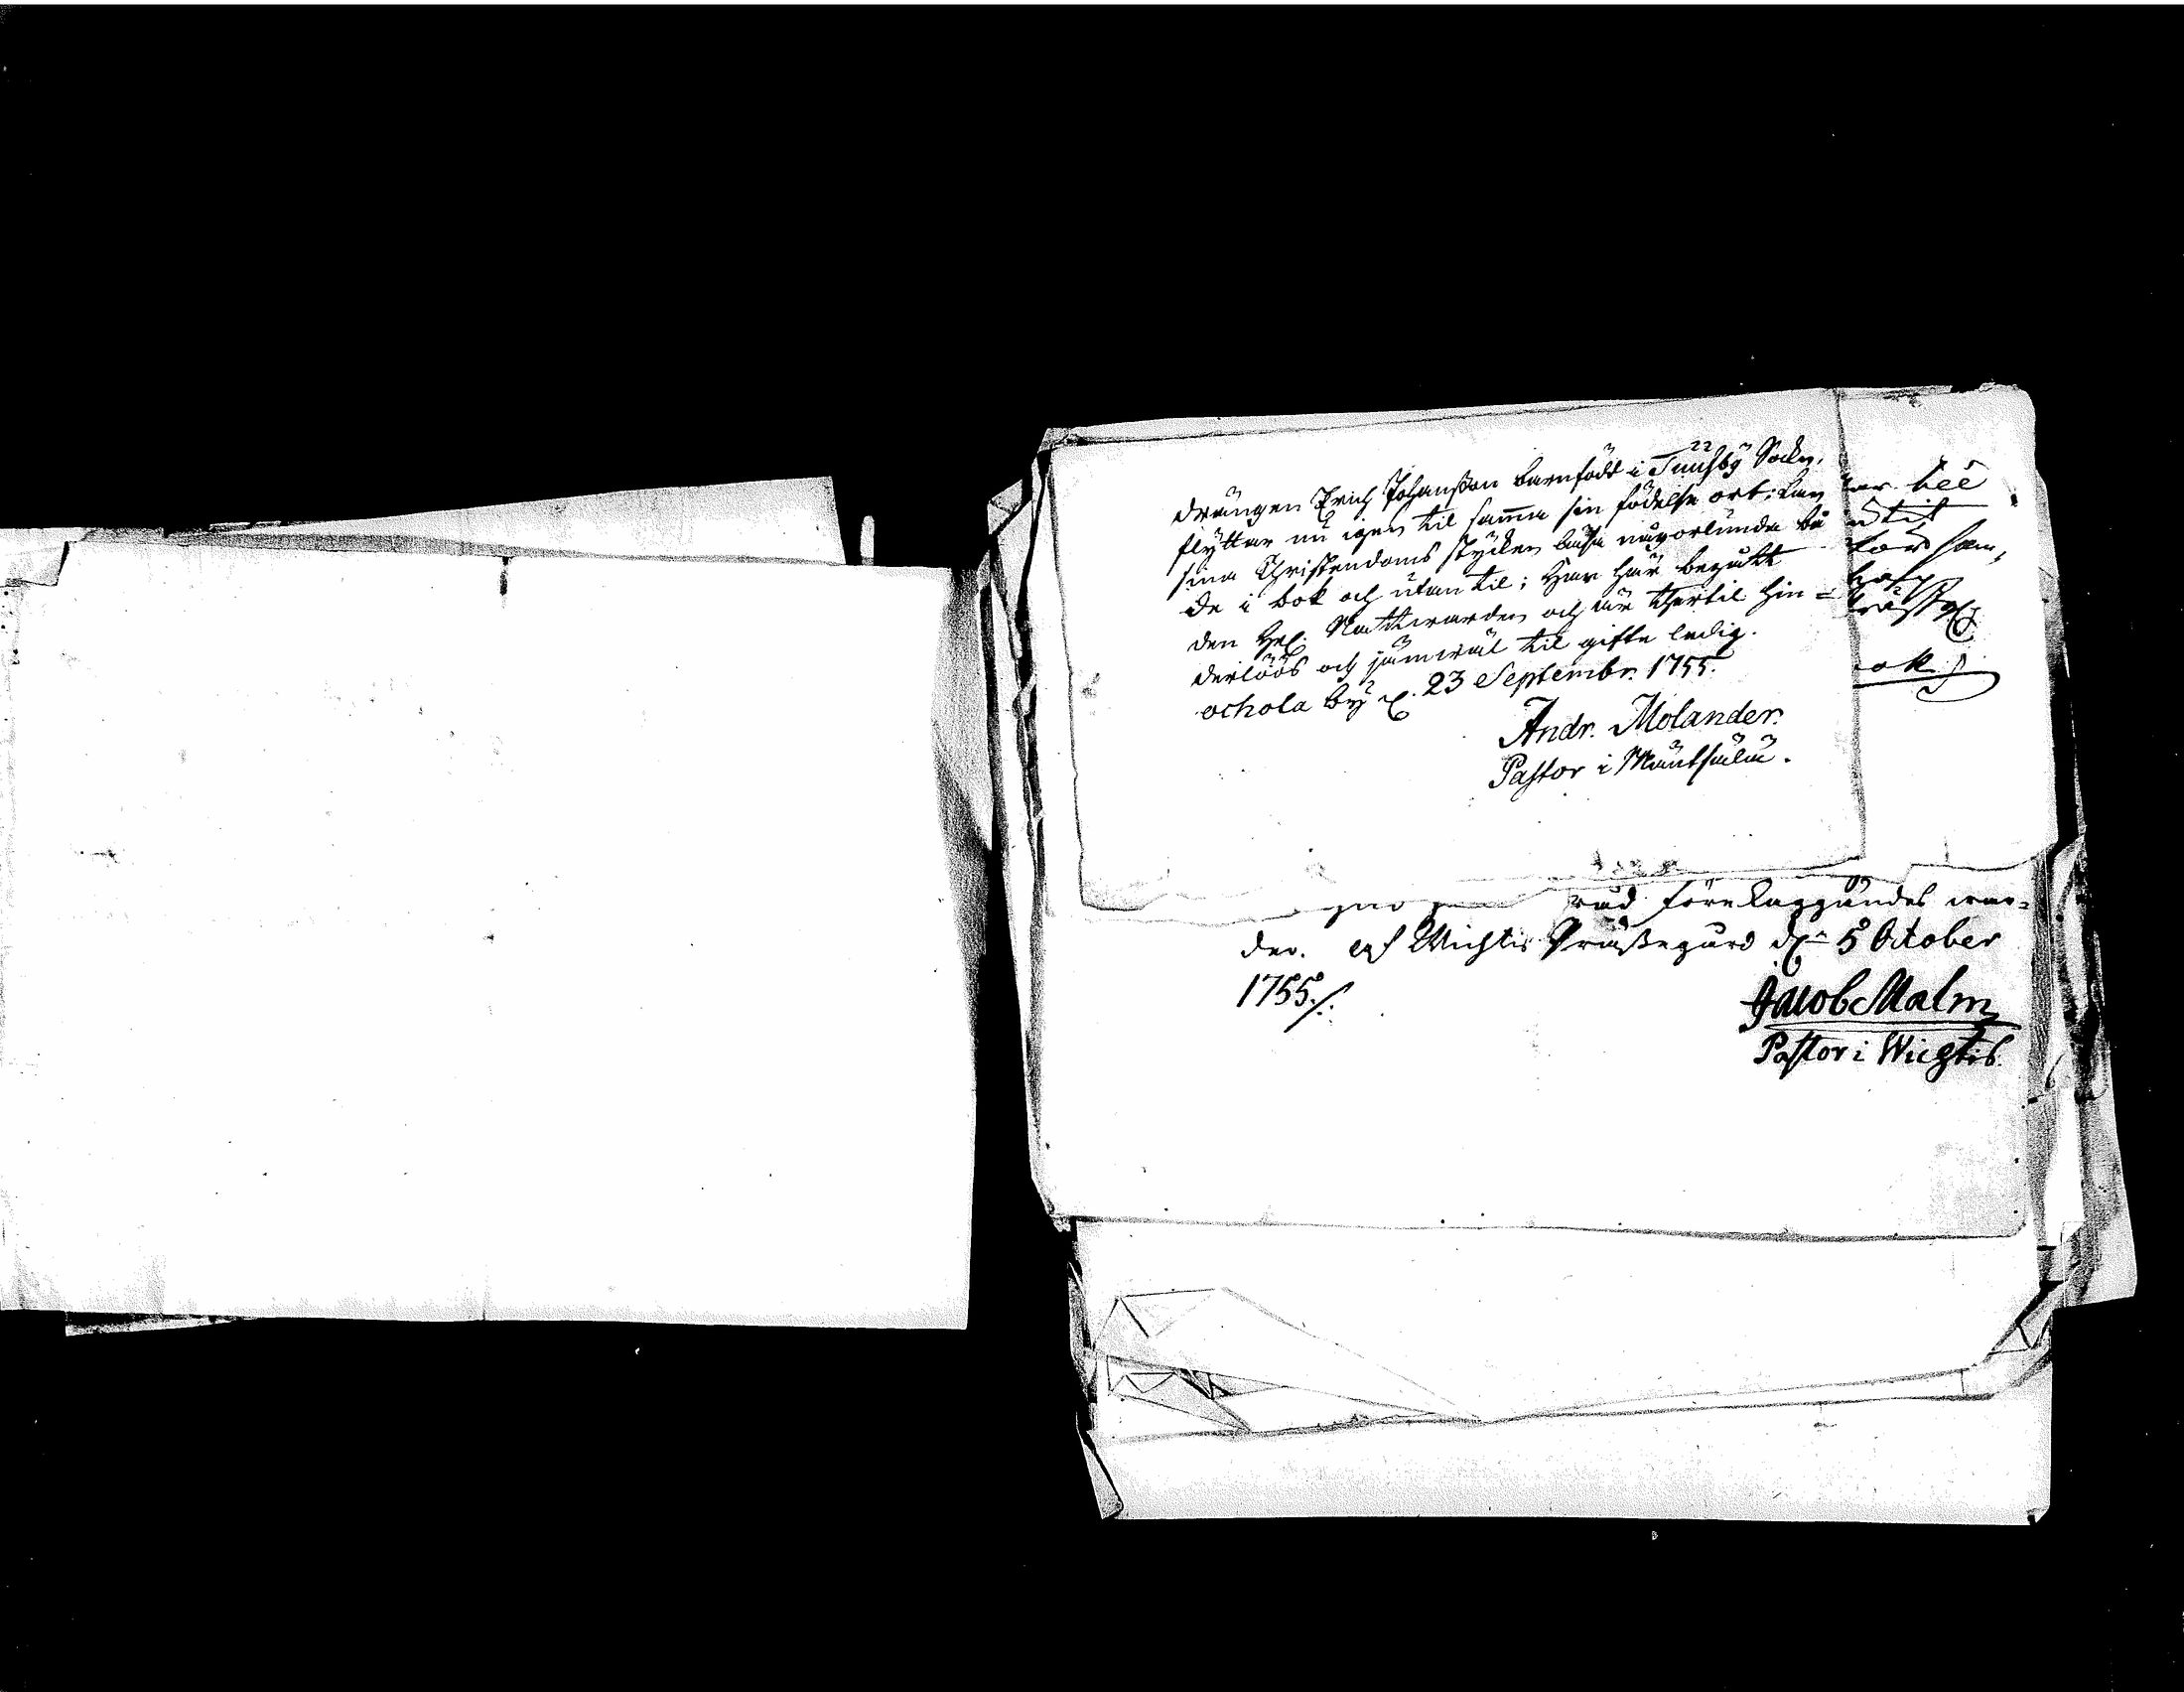 22
drängen Erich Johansson barnfödd i Tuusby Sockn,
flyttar nu igen til samma sin födelse ort; kan
sina Christendoms stycken läsa någorlunda bå
de i bok och utan til; Har här begått
den Hel. Nattwarden och är thertil hin=
derlöös och jämwäl til gifte ledig.
ochola by d. 23 Septembr. 1755.
Andr. Molander.
Pastor i Mäntsälä.
ok
råd föreläggandes war=
der. af Wichtis Prästegård d. 5 October
1755./.
Jacob Malm
Pastor i Wichtis.